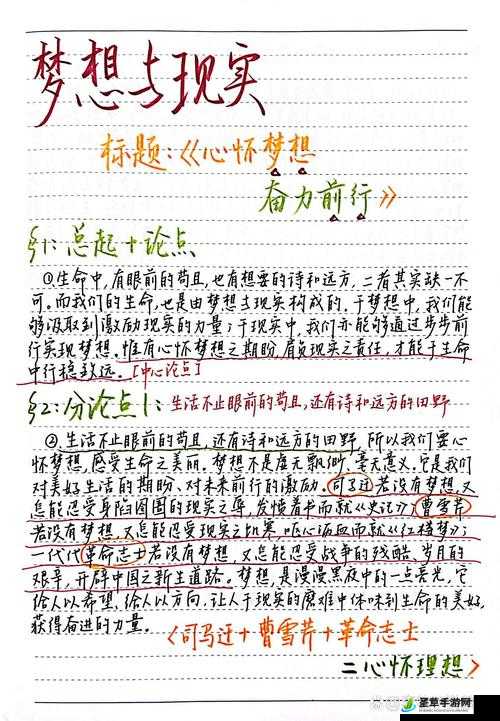 梦想与现实
标题:《心怀梦想
奋力前行》
§1:总起+论点
①生命中,有眼前的苟且,也有想要的诗和远方,二者其实缺一不
可。而我们的生命,也是由梦想与现实构成的。于梦想中,我们能
够汲取到激励现实的力量;于现实中,我们亦能够通过步步前
行实现梦想。惟有心怀梦想之期盼,肩负现实之责任,才能于生命
中行稳致远。[中心论点]
§2:分论点1:生活不止眼前的苟且,还有诗和远方的田野
②生活不止眼前的苟且,还有诗和远方的田野,所以我们要心
怀梦想,感受生命之美丽。梦想不是虚无飘缈、毫无意义,它是我们
对美好生活的期盼、对未来前行的激励。司马迁若没有梦想,又
怎能忍受身陷囹圄的现实之辱,发愤着书而就《史记》;曹雪芹
若没有梦想,又怎能忍受现实之饥寒,呕心沥血而就《红楼梦》;
一代代革命志士若没有梦想,又怎能忍受战争的残酷、岁月的
艰辛,开辟中国之新生道路。梦想,是漫漫黑夜中的一点亮光,它
给人以希望,给人以方向,让人于现实的磨难中体味到生命的美好,
获得奋进的力量。
<司马迁+曹雪芹+革命志士
=心怀理想>
星草手游网